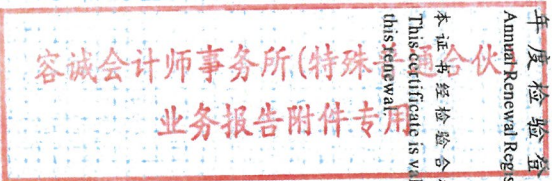 容诚会计师事务所(特殊普通合伙
业务报告附件专用
年度检验登
Annual Renewal Regis
本证书经检验合
This certificate is val
this renewal